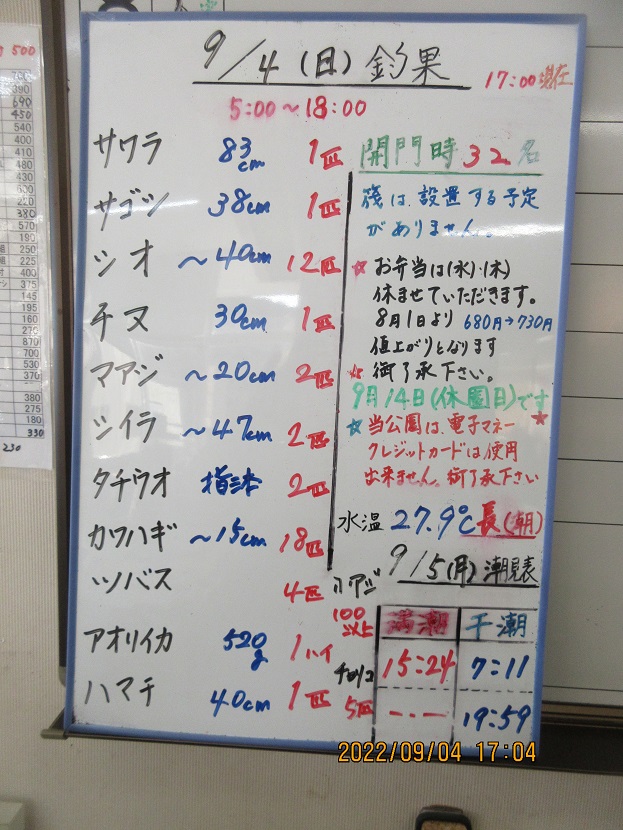 9/4(日)釣果
17:00現在
5:00～18:00
サワラ 83cm 1匹
サゴシ 38cm 1匹
シオ ～40cm 12匹
チヌ 30cm 1匹
マアジ ～20cm 2匹
シイラ ～47cm 2匹
タチウオ 指三本 2匹
カワハギ ～15cm 18匹
ツバス 4匹
アオリイカ 520g 1ハイ
ハマチ 40cm 1匹
開門時32名
筏は、設置する予定
がありません。
☆お弁当は(水)・(木)
休ませていただきます。
8月1日より 680円→730円
値上がりとなります
☆御了承下さい。
9月14日(休園日)です
☆当公園は、電子マネー★
クレジットカードは使用
出来ません。御了承下さい
水温 27.9℃ 長(潮)
9/5(月)潮見表
満潮 干潮
15:24 7:11
--.-- 19:59
100
以上
5匹
2022/09/04 17:04
500
390
690
450
540
400
410
480
300
600
220
380
570
190
250
225
400
375
145
195
160
270
870
700
530
370
380
275
180
330
230